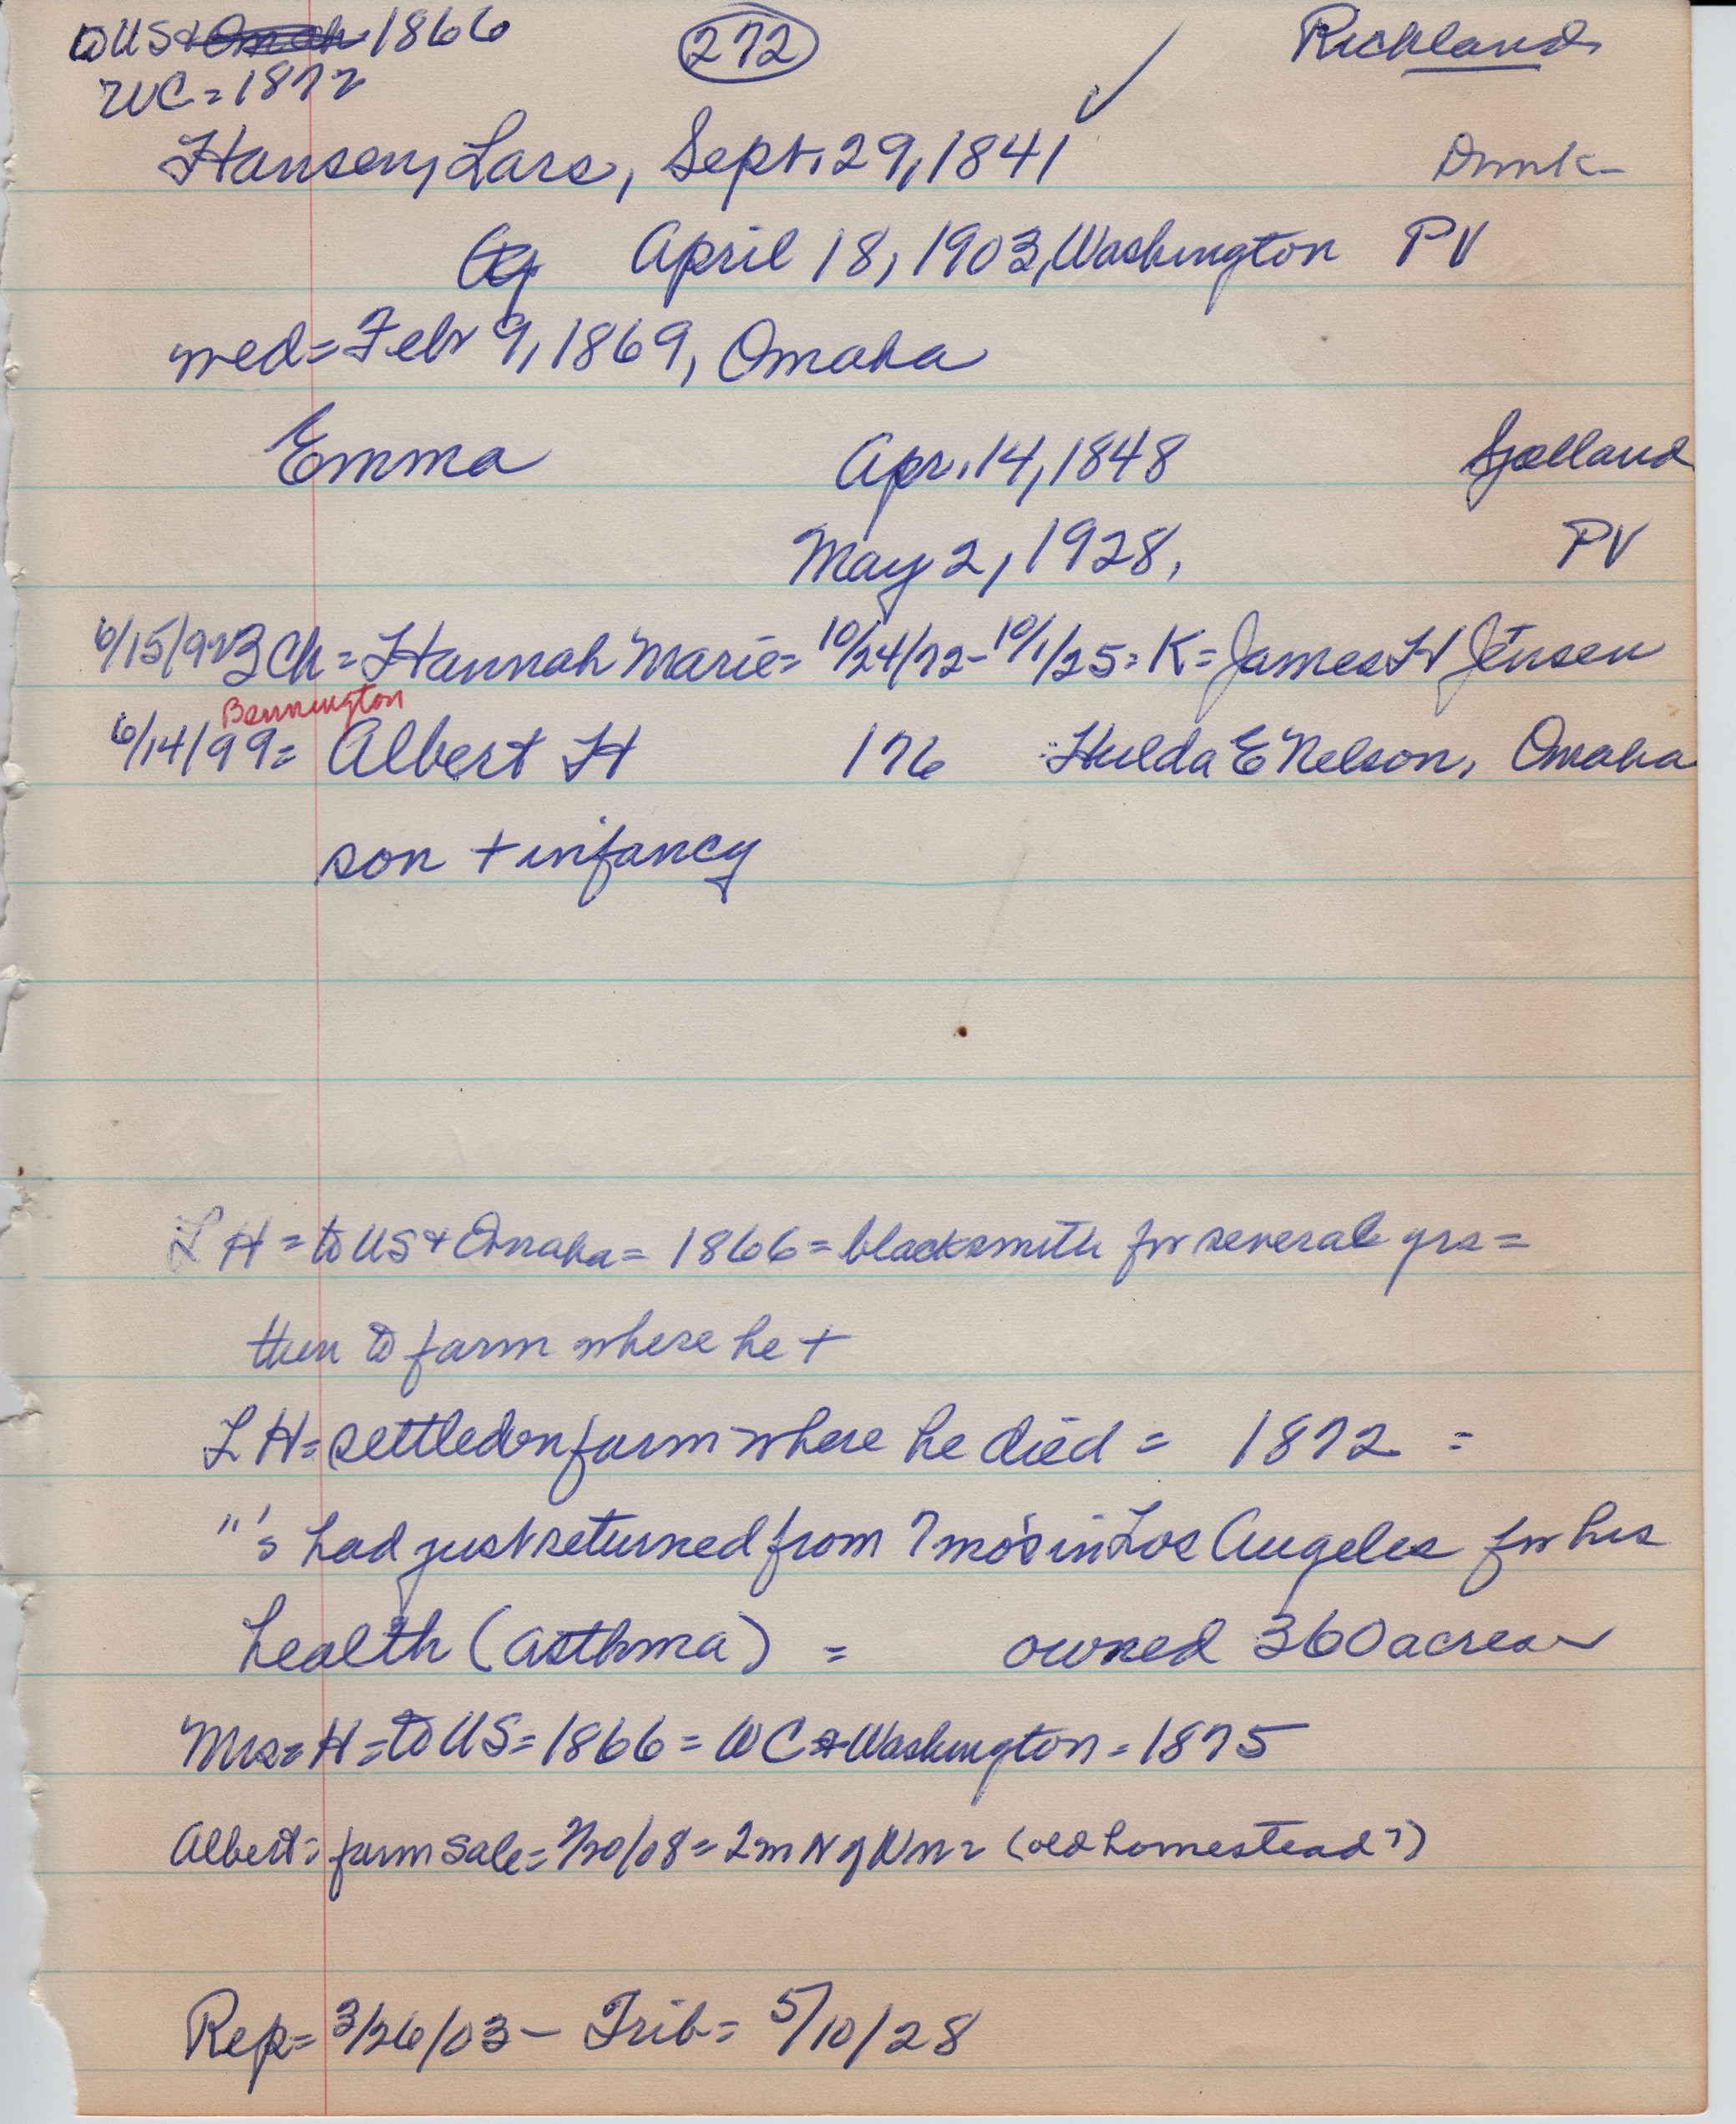 to US + Omah 1866
WC = 1872
272
Richland
Hansen, Lars, Sept. 29, 1841
Dmk
April 18, 1903, Washington PV
med = Febr 9, 1869, Omaha
Emma Apr. 14, 1848 Sjælland
May 2, 1928, PV
6/15/92 3 Ch = Hannah Marie = 10/24/72 - 10/1/25 = K = James H Jensen
Bennington
6/14/99 = Albert H 176 Hulda E Nelson, Omaha
son + infancy
L H = to US + Omaha = 1866 = blacksmith for several yrs =
then to farm where he +
L H = settled on farm where he died = 1872 =
" 's had just returned from 7 mo's in Los Angeles for his
health (asthma) = owned 360 acres
Mrs = H = to US = 1866 = WC + Washington = 1875
Albert = farm sale = /20/08 = 2 m N of Wn = (old homestead?)
Rep = 3/26/03 - Trib = 5/10/28